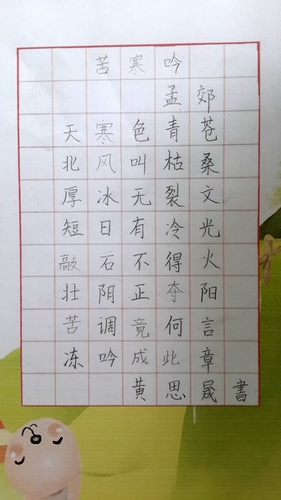 苦寒吟
孟郊
天寒色青苍
北风叫枯桑
厚冰无裂文
短日有冷光
敲石不得火
壮阳正夺阳
苦调竟何言
冻吟成此章
黄思晟書